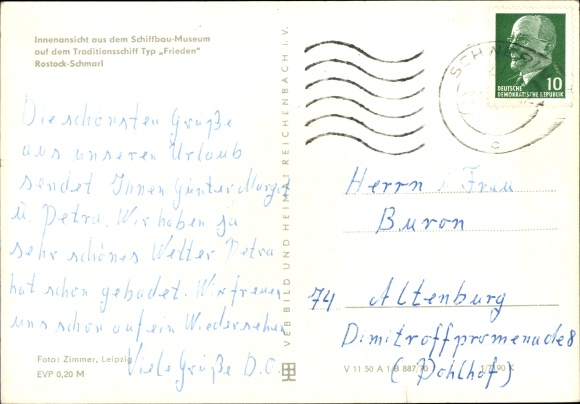 Innenansicht aus dem Schiffbau-Museum
auf dem Traditionsschiff Typ „Frieden"
Rostock-Schmarl
Die schönsten Grüße
aus unseren Urlaub
sendet Ihnen Günter Margot
u. Petra. Wir haben ja
sehr schönes Wetter Petra
hat schon gebadet. Wir freuen
uns schon auf ein Wiedersehen
Viele Grüße D.O.
Foto: Zimmer, Leipzig
EVP 0,20 M
VEB BILD UND HEIMAT REICHENBACH i. V.
SCHWERI
c
10
DEUTSCHE
DEMOKRATISCHE REPUBLIK
Herrn / Frau
Buron
74 Altenburg
Dimitroffpromenade 8
(Pohlhof)
V 11 50 A 1 B 887/70